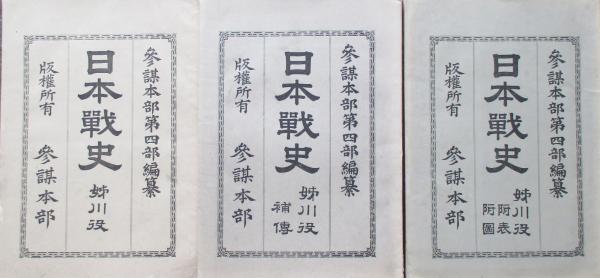 參謀本部第四部編纂
日本戰史
姉川役
版權所有
參謀本部
參謀本部第四部編纂
日本戰史
姉川役
補傳
版權所有
參謀本部
參謀本部第四部編纂
日本戰史
姉川役
附表
附圖
版權所有
參謀本部